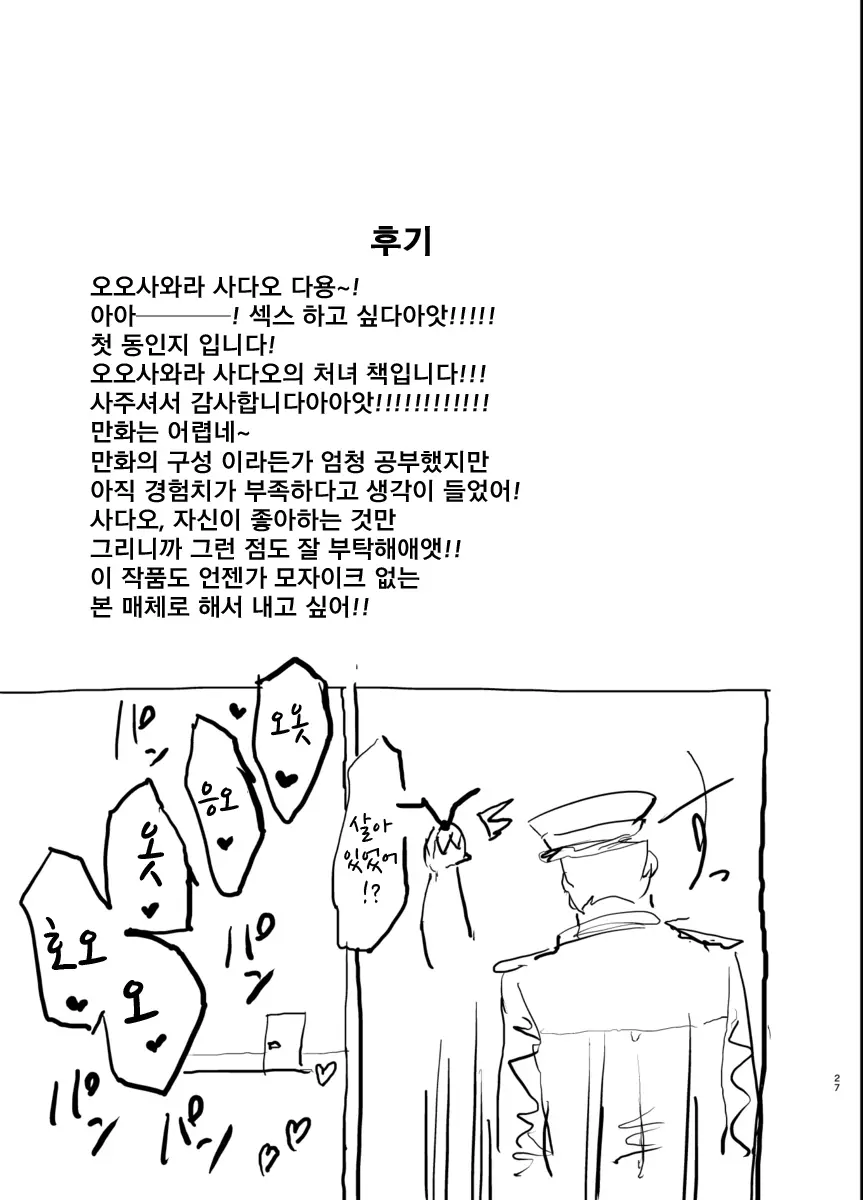 후기
오오사와라 사다오 다용~!
아아――――! 섹스 하고 싶다아앗!!!!!
첫 동인지 입니다!
오오사와라 사다오의 처녀 책입니다!!!
사주셔서 감사합니다아아앗!!!!!!!!!!!!
만화는 어렵네~
만화의 구성 이라든가 엄청 공부했지만
아직 경험치가 부족하다고 생각이 들었어!
사다오, 자신이 좋아하는 것만
그리니까 그런 점도 잘 부탁해애앳!!
이 작품도 언젠가 모자이크 없는
본 매체로 해서 내고 싶어!!
오옷♥
응오♥
옷♥
호오♥
오♥
パン
パン
パン
パン
살아
있었어
!?
27